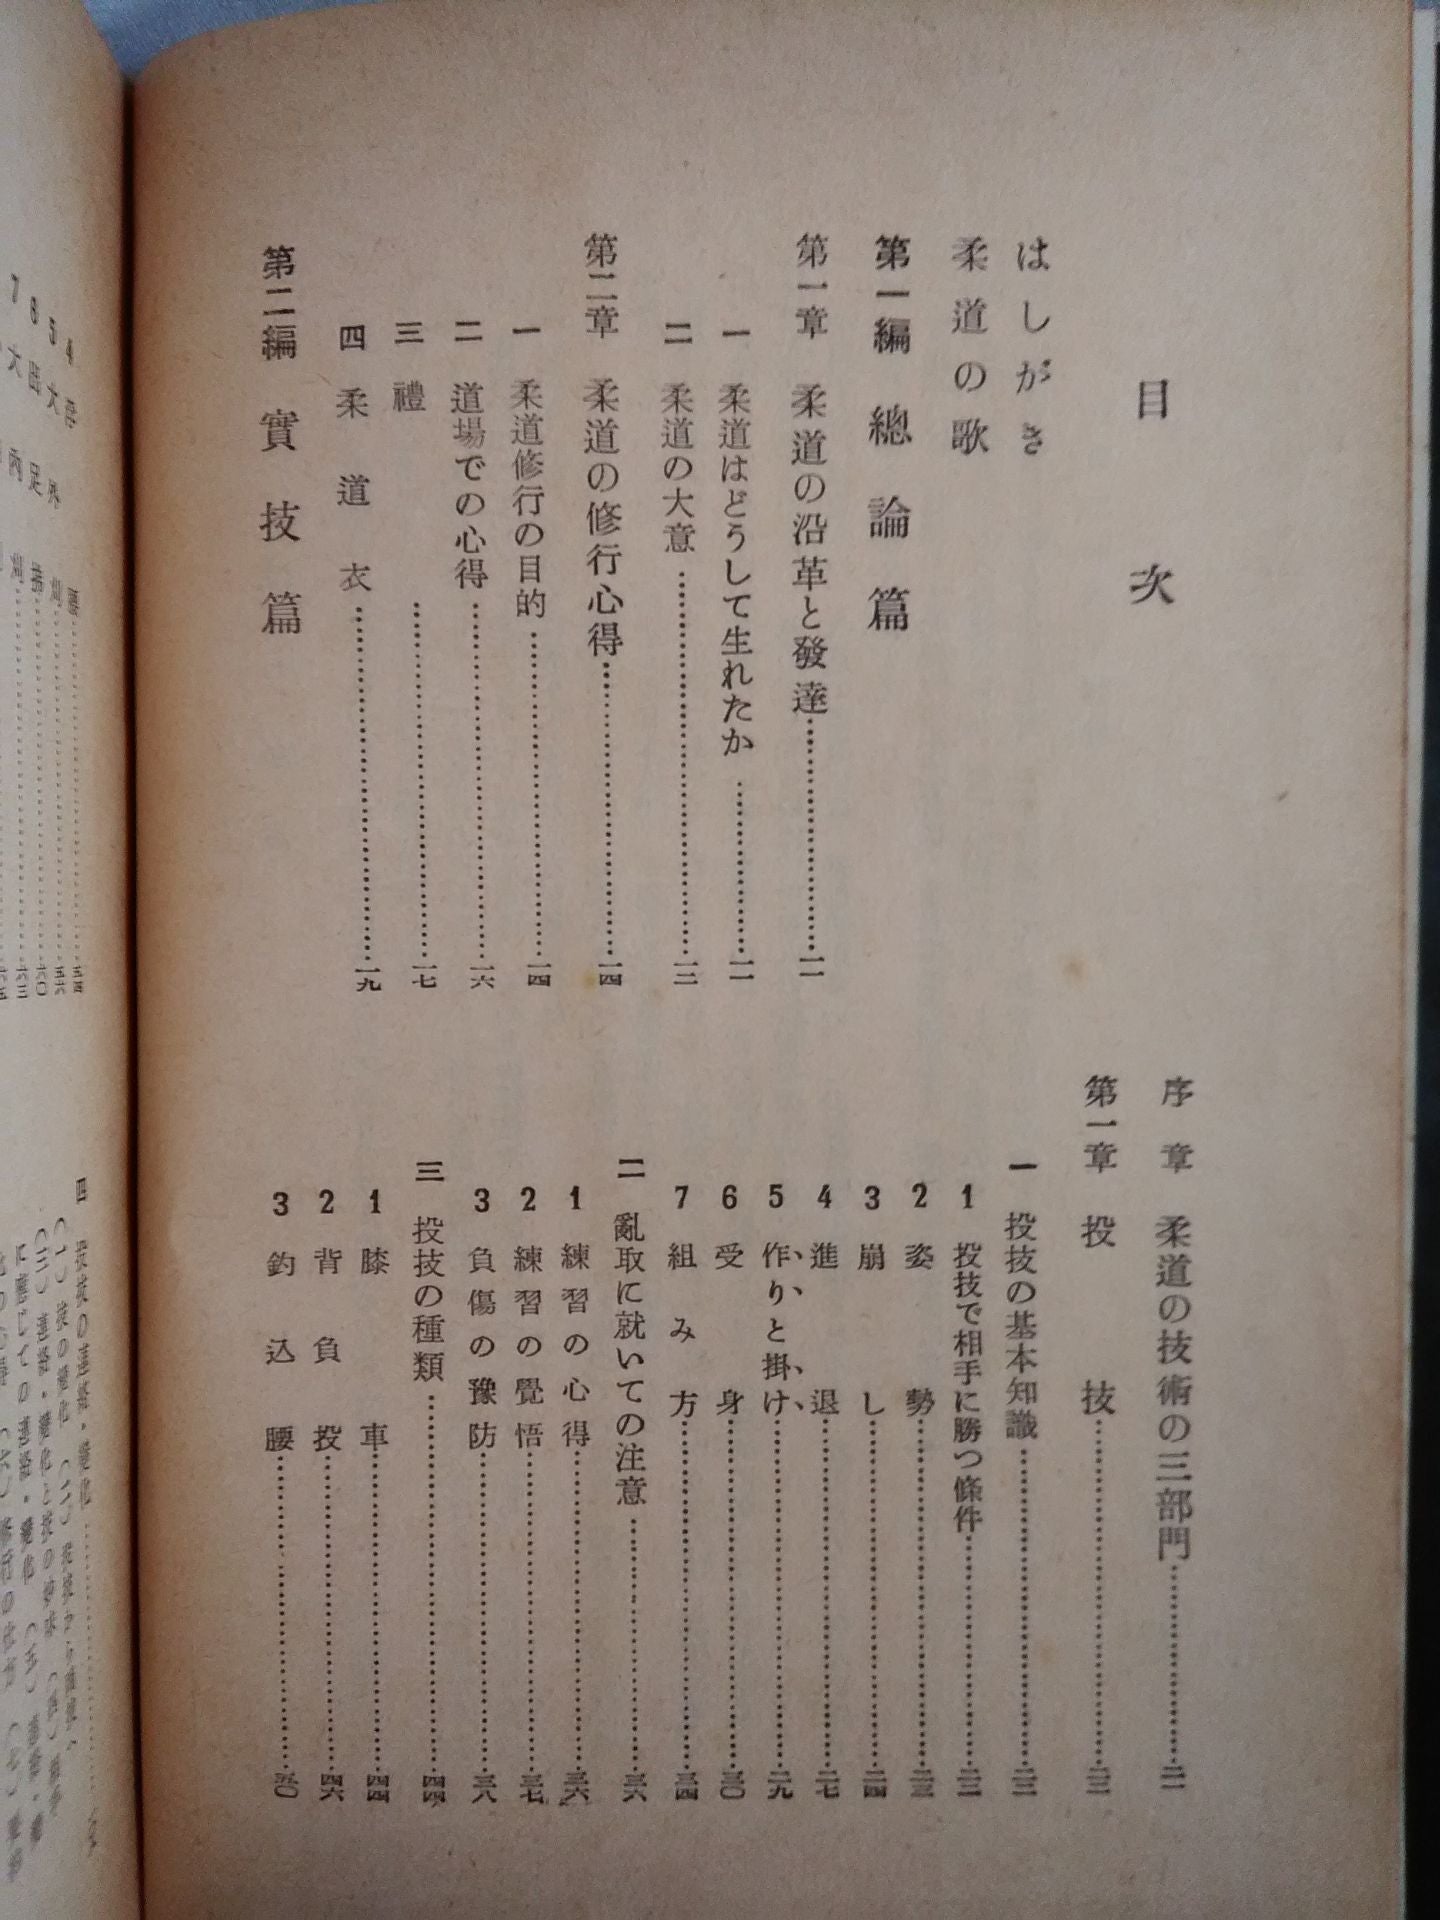 目次
はしがき
柔道の歌
第一編 總論篇
第一章 柔道の沿革と發達……一一
一 柔道はどうして生れたか……一一
二 柔道の大意……一二
第二章 柔道の修行心得……一四
一 柔道修行の目的……一四
二 道場での心得……一六
三 禮……一七
四 柔道衣……一九
第二編 實技篇
序章 柔道の技術の三部門……二一
第一章 投技……二二
一 投技の基本知識……二二
1 投技で相手に勝つ條件……二二
2 姿勢……二三
3 崩し……二四
4 進退……二七
5 作りと掛け……二九
6 受身……三〇
7 組み方……三四
二 亂取に就いての注意……三六
1 練習の心得……三六
2 練習の覺悟……三七
3 負傷の豫防……三八
三 投技の種類……四四
1 膝車……四四
2 背負投……四六
3 釣込腰……五〇
四 投技の連絡・變化